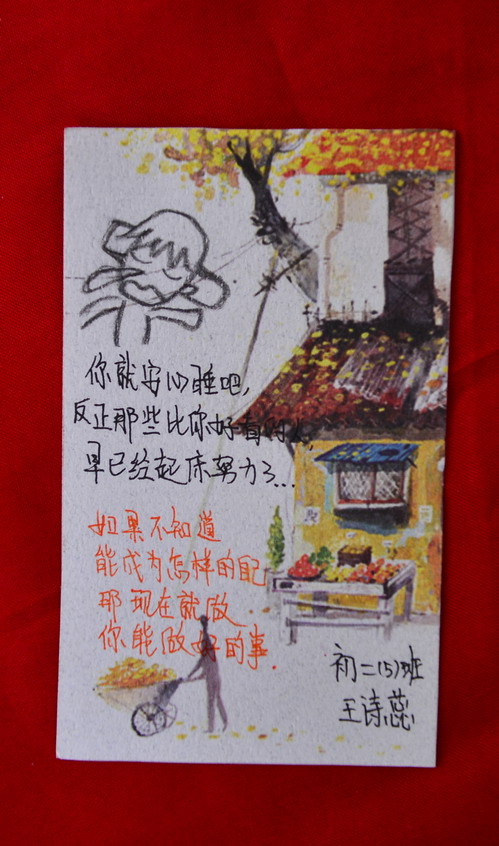 你就安心睡吧,
反正那些比你好看的人,
早已经起床努力了...
如果不知道
能成为怎样的自己
那现在就做
你能做好的事.
初二(5)班
王诗蕊